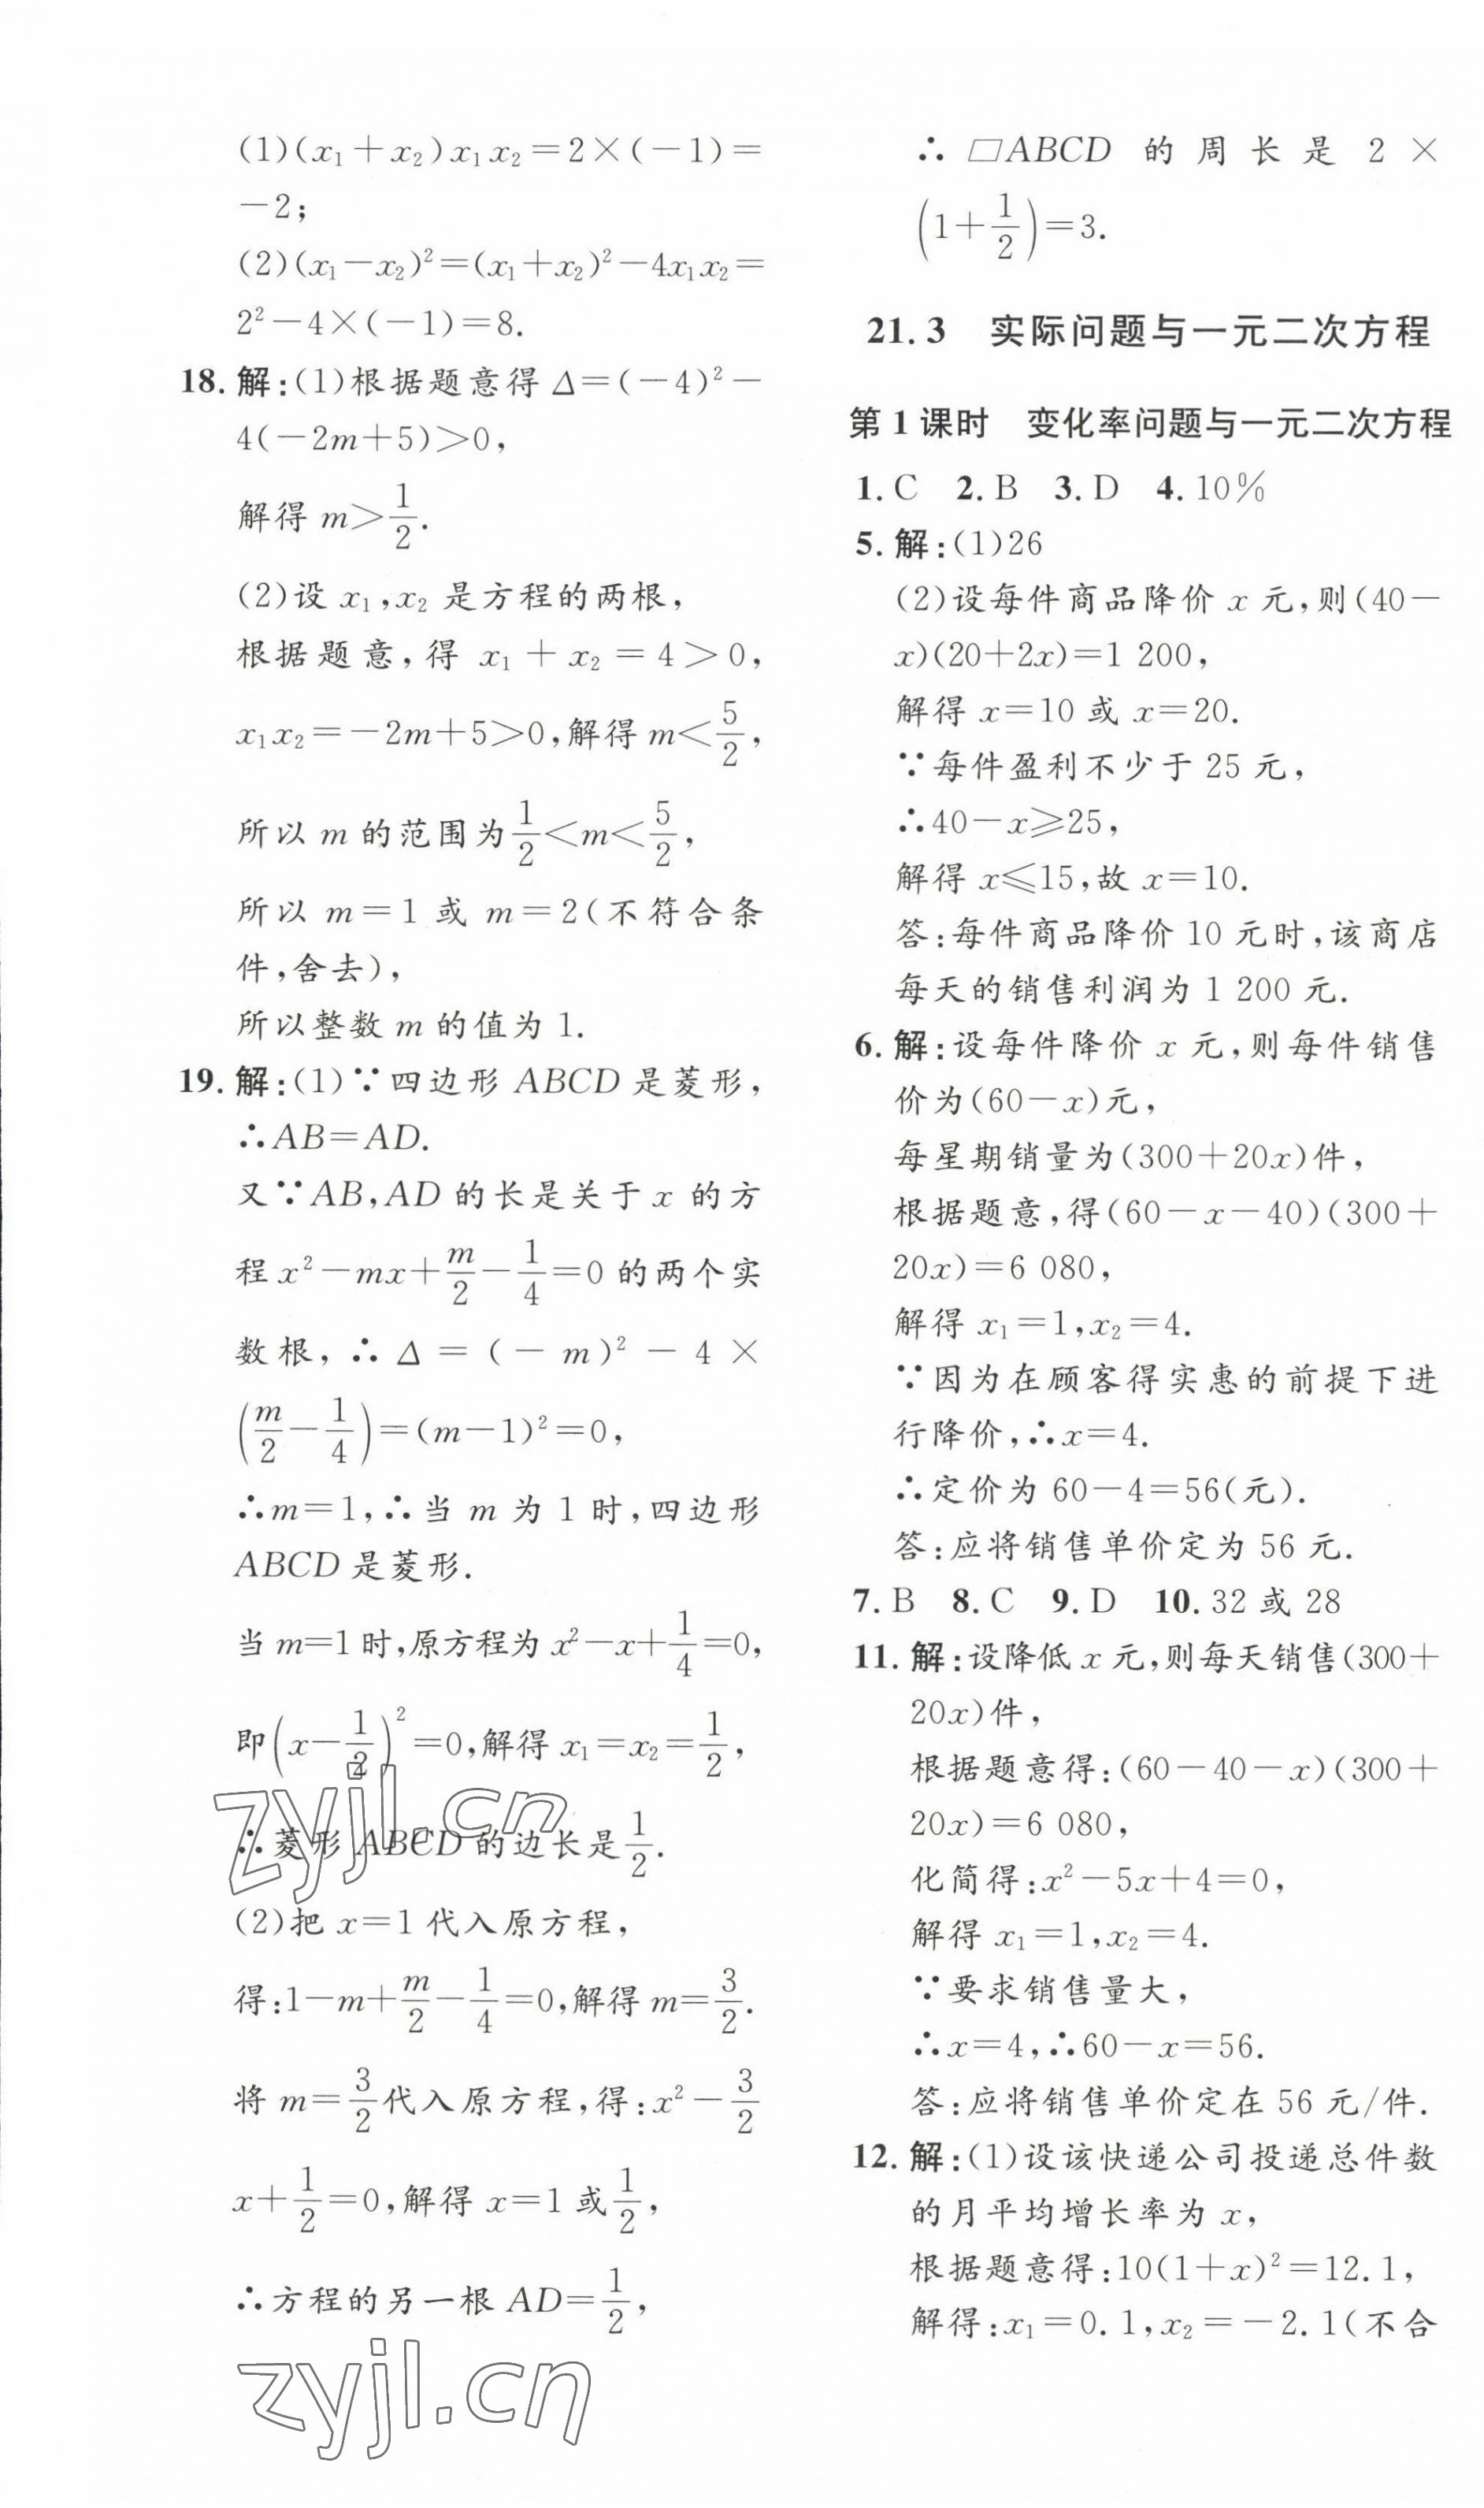 (1)(x₁+x₂)x₁x₂=2×(-1)=
-2;
(2)(x₁-x₂)²=(x₁+x₂)²-4x₁x₂=
2²-4×(-1)=8.
18. 解:(1)根据题意得 Δ=(-4)²-
4(-2m+5)>0,
解得 m>1/2.
(2)设 x₁,x₂ 是方程的两根,
根据题意,得 x₁+x₂=4>0,
x₁x₂=-2m+5>0,解得 m<5/2,
所以 m 的范围为 1/2<m<5/2,
所以 m=1 或 m=2(不符合条
件,舍去),
所以整数 m 的值为 1.
19. 解:(1)∵四边形 ABCD 是菱形,
∴AB=AD.
又∵AB,AD 的长是关于 x 的方
程 x²-mx+m/2-1/4=0 的两个实
数根,∴Δ=(-m)²-4×
(m/2-1/4)=(m-1)²=0,
∴m=1,∴当 m 为 1 时,四边形
ABCD 是菱形.
当 m=1 时,原方程为 x²-x+1/4=0,
即(x-1/2)²=0,解得 x₁=x₂=1/2,
∴菱形 ABCD 的边长是 1/2.
zyjl.cn
(2)把 x=1 代入原方程,
得:1-m+m/2-1/4=0,解得 m=3/2.
将 m=3/2 代入原方程,得:x²-3/2
x+1/2=0,解得 x=1 或 1/2,
∴方程的另一根 AD=1/2,
zyjl.cn
∴ ▱ABCD 的周长是 2×
(1+1/2)=3.
21.3 实际问题与一元二次方程
第 1 课时 变化率问题与一元二次方程
1. C 2. B 3. D 4. 10%
5. 解:(1)26
(2)设每件商品降价 x 元,则(40-
x)(20+2x)=1 200,
解得 x=10 或 x=20.
∵每件盈利不少于 25 元,
∴40-x⩾25,
解得 x⩽15,故 x=10.
答:每件商品降价 10 元时,该商店
每天的销售利润为 1 200 元.
6. 解:设每件降价 x 元,则每件销售
价为(60-x)元,
每星期销量为(300+20x)件,
根据题意,得(60-x-40)(300+
20x)=6 080,
解得 x₁=1,x₂=4.
∵因为在顾客得实惠的前提下进
行降价,∴x=4.
∴定价为 60-4=56(元).
答:应将销售单价定为 56 元.
7. B 8. C 9. D 10. 32 或 28
11. 解:设降低 x 元,则每天销售(300+
20x)件,
根据题意得:(60-40-x)(300+
20x)=6 080,
化简得:x²-5x+4=0,
解得 x₁=1,x₂=4.
∵要求销售量大,
∴x=4,∴60-x=56.
答:应将销售单价定在 56 元/件.
12. 解:(1)设该快递公司投递总件数
的月平均增长率为 x,
根据题意得:10(1+x)²=12.1,
解得:x₁=0.1,x₂=-2.1(不合